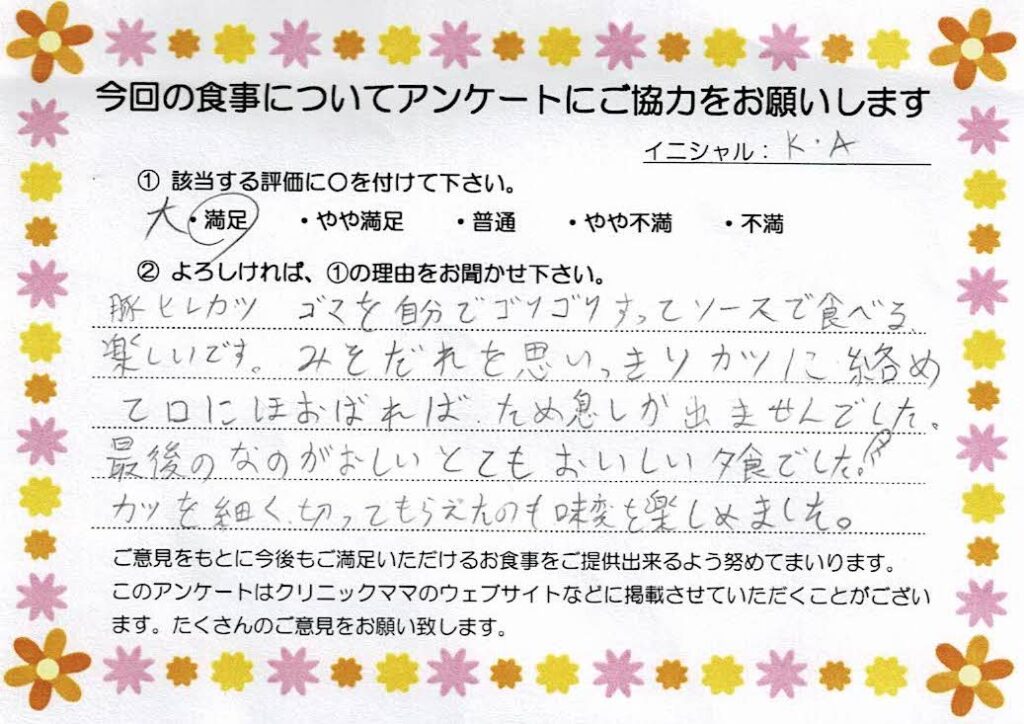 今回の食事についてアンケートにご協力をお願いします
イニシャル： K・A
① 該当する評価に○を付けて下さい。
大・満足 ・やや満足 ・普通 ・やや不満 ・不満
② よろしければ、①の理由をお聞かせ下さい。
豚ヒレカツ ゴマを自分でゴリゴリすってソースで食べる、
楽しいです。みそだれを思いっきりカツに絡め
て口にほおばれば、ため息しか出ませんでした。
最後のなのがおしいとてもおいしい夕食でした。
カツを細く、切ってもらえたのも味変を楽しめました。
ご意見をもとに今後もご満足いただけるお食事をご提供出来るよう努めてまいります。
このアンケートはクリニックママのウェブサイトなどに掲載させていただくことがござい
ます。たくさんのご意見をお願い致します。